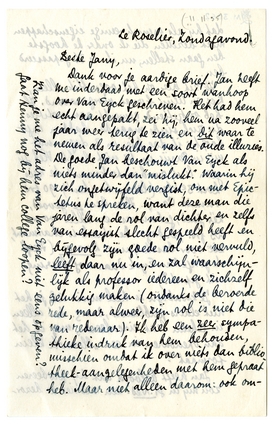 11 11 35
Le Roselier, Zondagavond.
Beste Jany,
Dank voor je aardige brief. Jan heeft
me inderdaad met een soort wanhoop
over Van Eyck geschreven. Het had hem
echt aangepakt, zei hij, hem na zooveel
jaar weer terug te zien en dit waar te
nemen als resultaat van de oude illusies.
De goede Jan beschouwt Van Eyck als
niets minder dan "mislukt". Waarin hij
zich ongetwijfeld vergist, om met Epic-
tetus te spreken, want deze man die
jaren lang de rol van dichter en zelfs
van essayist slecht gespeeld heeft en
bijgevolg zijn goede rol niet vervuld,
leeft daar nu in, en zal waarschijn-
lijk als professor iedereen en zichzelf
gelukkig maken (ondanks de beroerde
rede, maar alweer, zijn rol is niet die
van redenaar). Ik heb een zeer sympa-
thieke indruk van hem behouden,
misschien omdat ik over niets dan biblio-
theek-aangelegenheden met hem gepraat
heb. Maar niet alleen daarom: ook om-
Kan je me het adres van Van Eyck niet eens opgeven?
Gaat Henny nog bij hem college loopen?